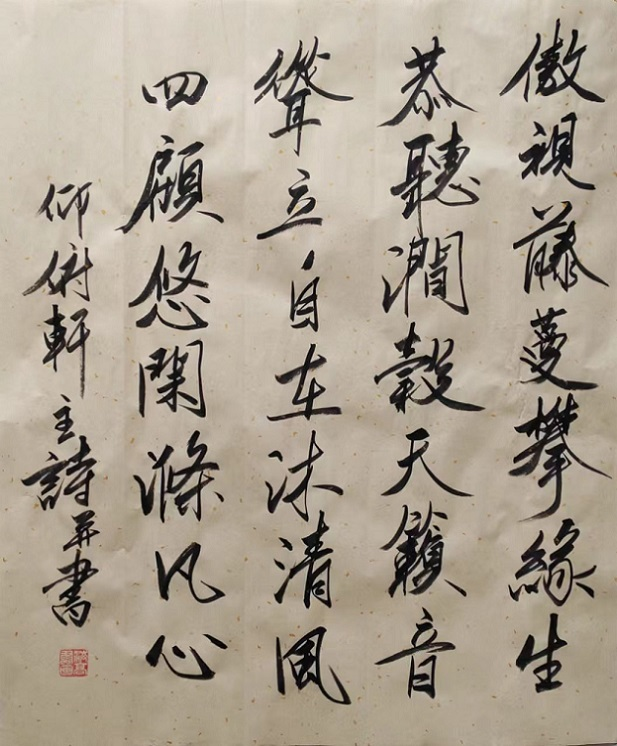 傲視藤蔓攀緣生
恭聽澗穀天籟音
聳立自在沐清風
四顧悠閑滌凡心
仰俯軒主詩并書